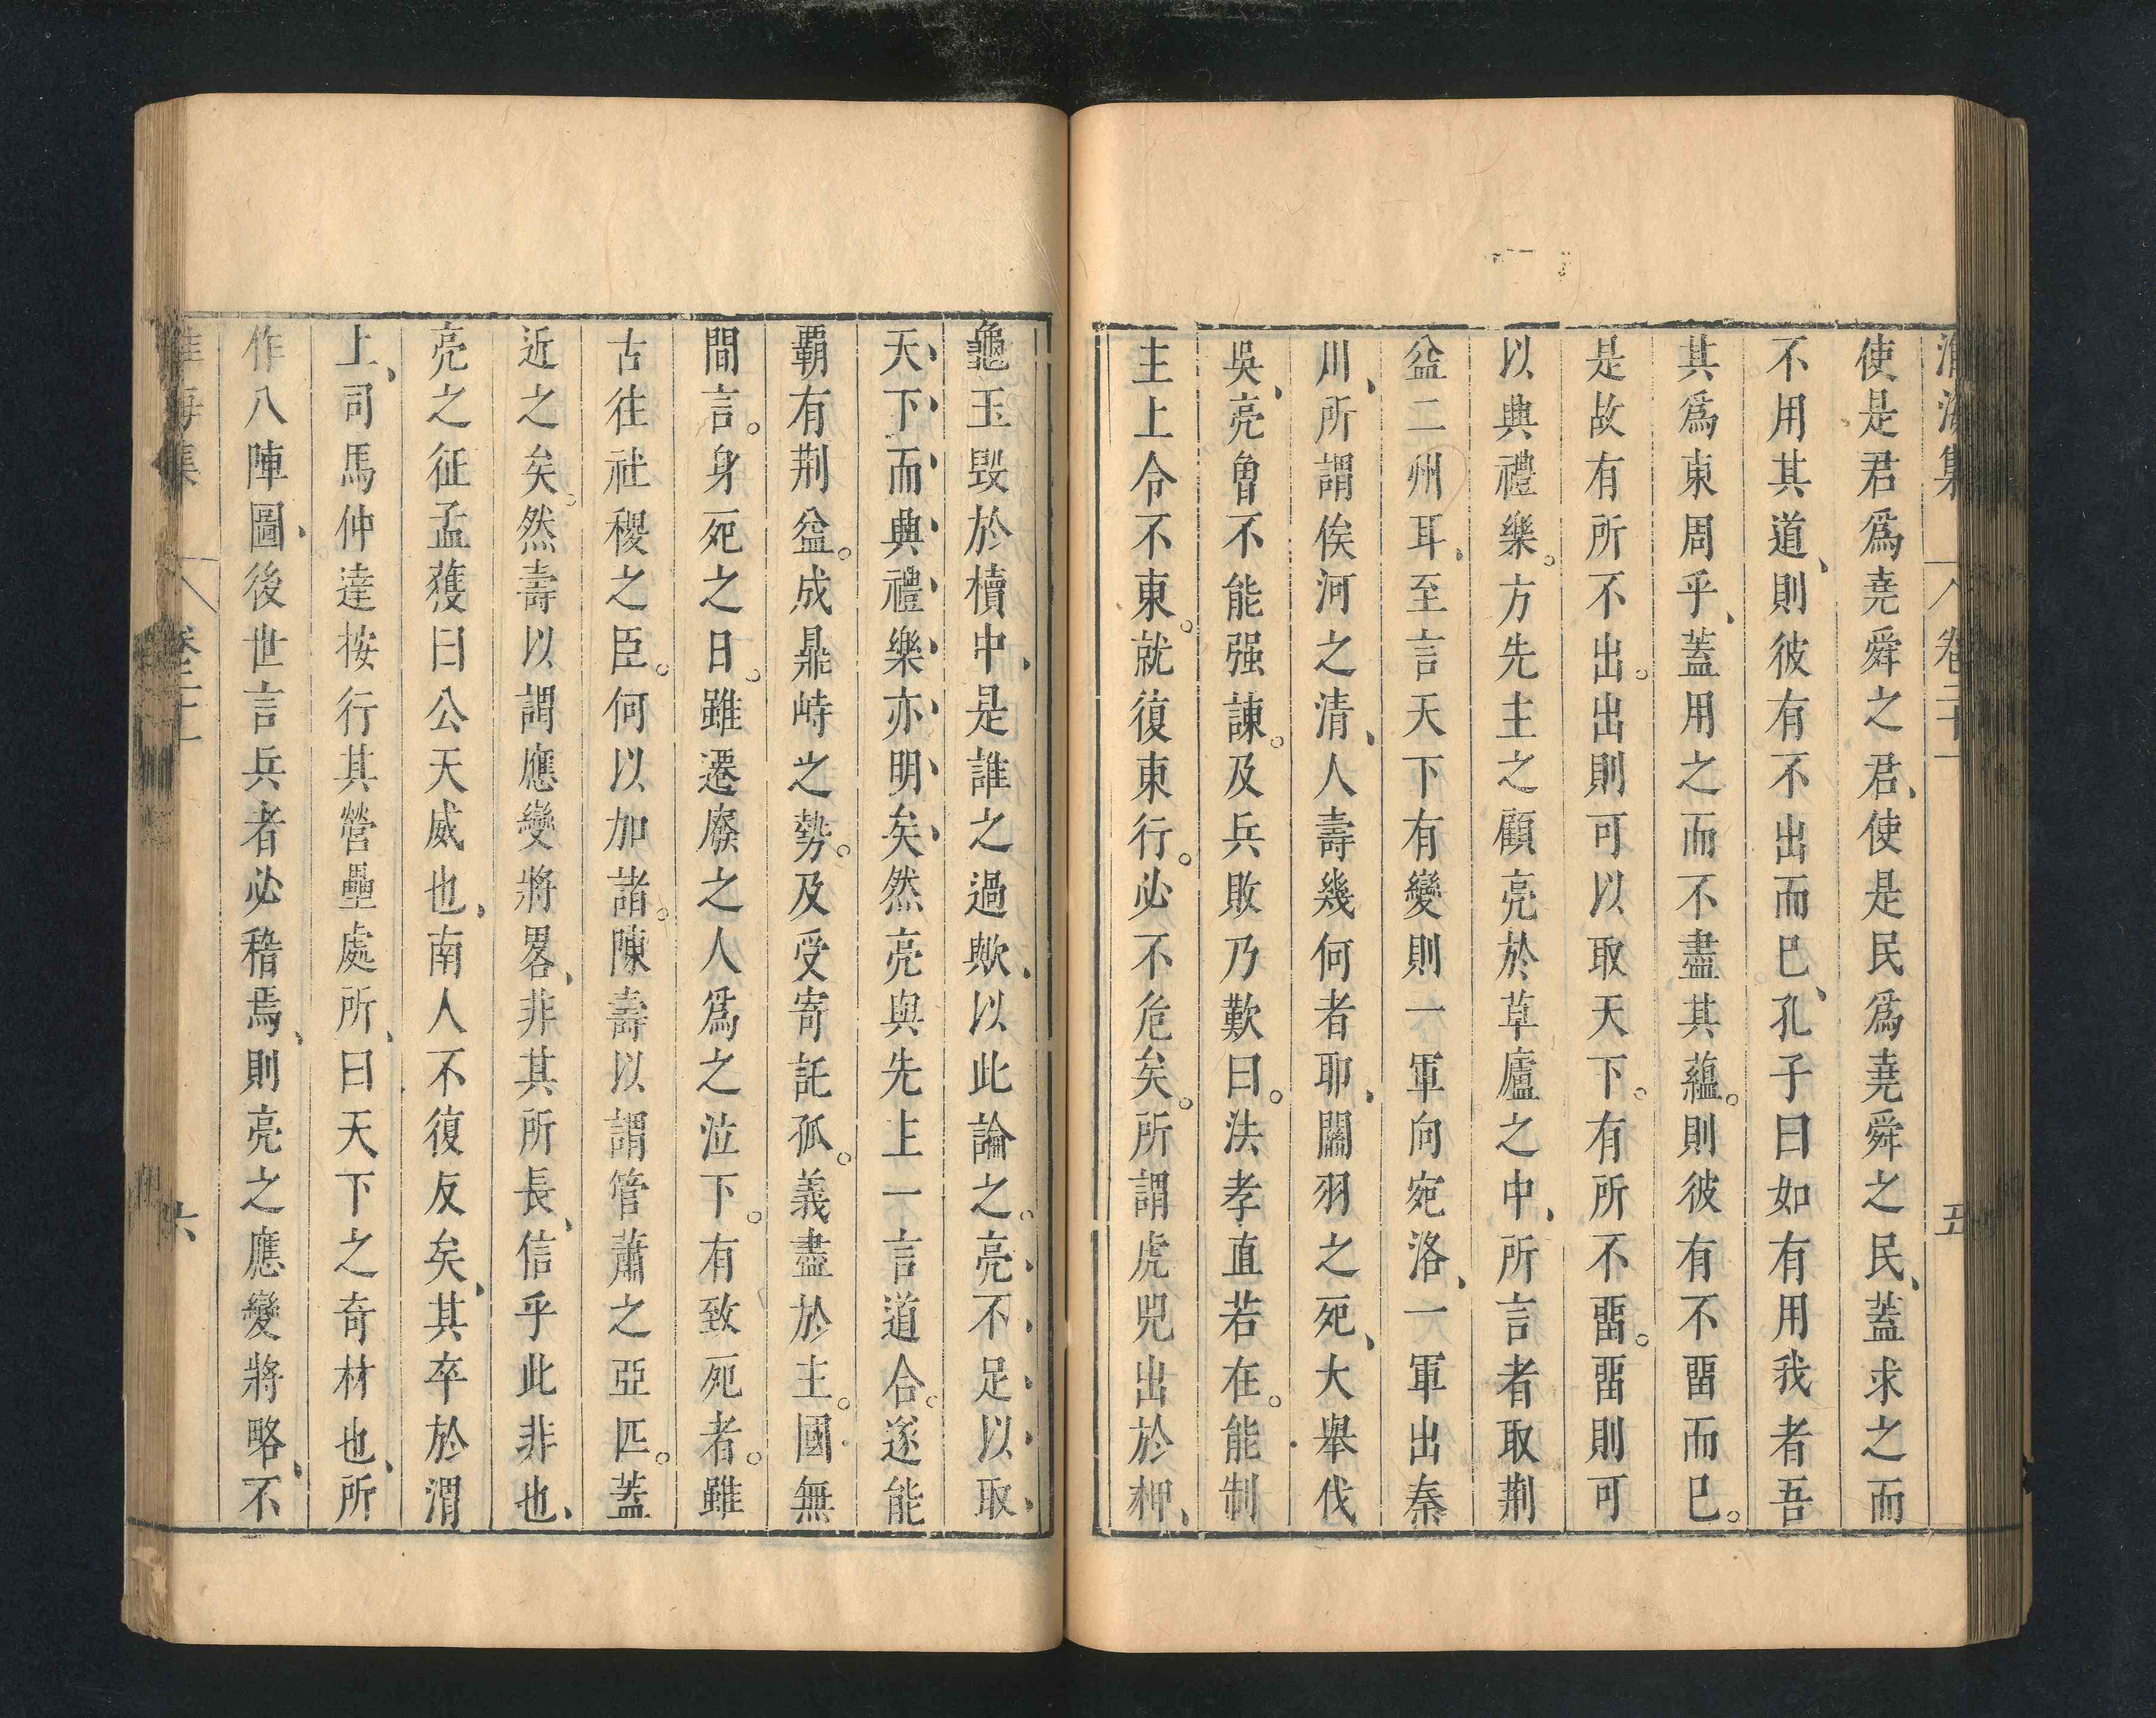 淮海集 卷二十一 五
使是君爲堯舜之君、使是民爲堯舜之民、蓋求之而
不用其道、則彼有不出而已、孔子曰如有用我者吾
其爲東周乎、蓋用之而不盡其蘊。則彼有不畱而已。
是故有所不出。出則可以取天下。有所不畱。畱則可
以興禮樂。方先主之顧亮於草廬之中、所言者取荆
益二州耳、至言天下有變則一軍向宛洛、一軍出秦
川、所謂俟河之清、人壽幾何者耶、關羽之死、大舉伐
吳、亮曾不能强諫。及兵敗乃歎曰。法孝直若在。能制
主上令不東。就復東行。必不危矣。所謂虎兕出於柙、
龜玉毁於櫝中、是誰之過歟、以此論之。亮不足以取
天下而興禮樂亦明矣、然亮與先主一言道合。遂能
覇有荆益。成鼎峙之勢。及受寄託孤。義盡於主。國無
間言。身死之日。雖遷廢之人爲之泣下。有致死者。雖
古徃社稷之臣。何以加諸。陳壽以謂管蕭之亞匹。蓋
近之矣。然壽以謂應變將畧、非其所長、信乎此非也、
亮之征孟獲曰公天威也、南人不復反矣、其卒於渭
上、司馬仲達按行其營壘處所、曰天下之奇材也、所
作八陣圖、後世言兵者必稽焉、則亮之應變將略、不
淮海集 卷二十一 六